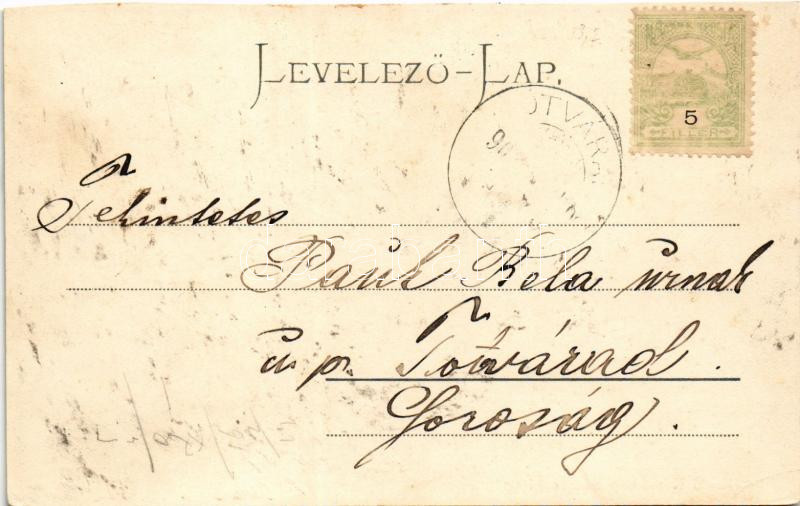 LEVELEZŐ-LAP.
5
FILLÉR
TÓTVÁRAD
Tekintetes
Paul Béla úrnak
u. p. Tótvárad.
Soroság.